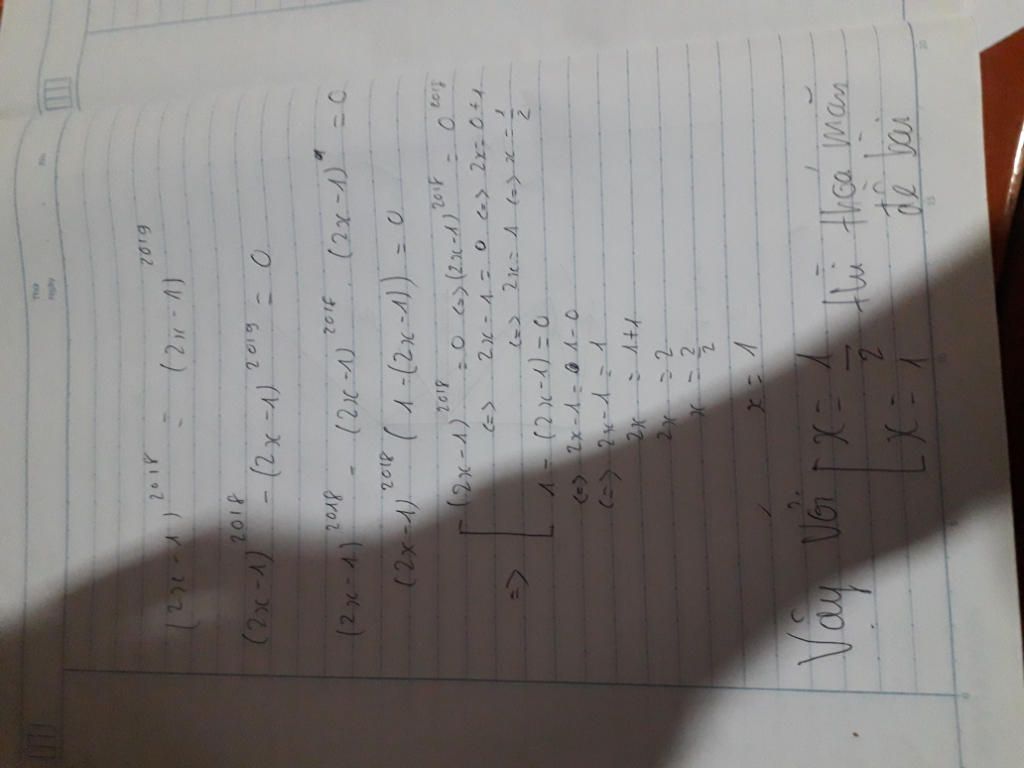 (2x-1)²⁰¹⁸ = (2x-1)²⁰¹⁹
(2x-1)²⁰¹⁸ - (2x-1)²⁰¹⁹ = 0
(2x-1)²⁰¹⁸ - (2x-1)²⁰¹⁸ (2x-1) = 0
(2x-1)²⁰¹⁸ (1-(2x-1)) = 0
=> [ (2x-1)²⁰¹⁸ = 0 <=> (2x-1)²⁰¹⁸ = 0²⁰¹⁸
<=> 2x-1 = 0 <=> 2x = 0+1
<=> 2x = 1 <=> x = 1/2
1-(2x-1) = 0
<=> 2x-1 = 1-0
<=> 2x-1 = 1
2x = 1+1
2x = 2
x = 2/2
x = 1
Vậy với [ x = 1/2 thì thỏa mãn
[ x = 1 đề bài